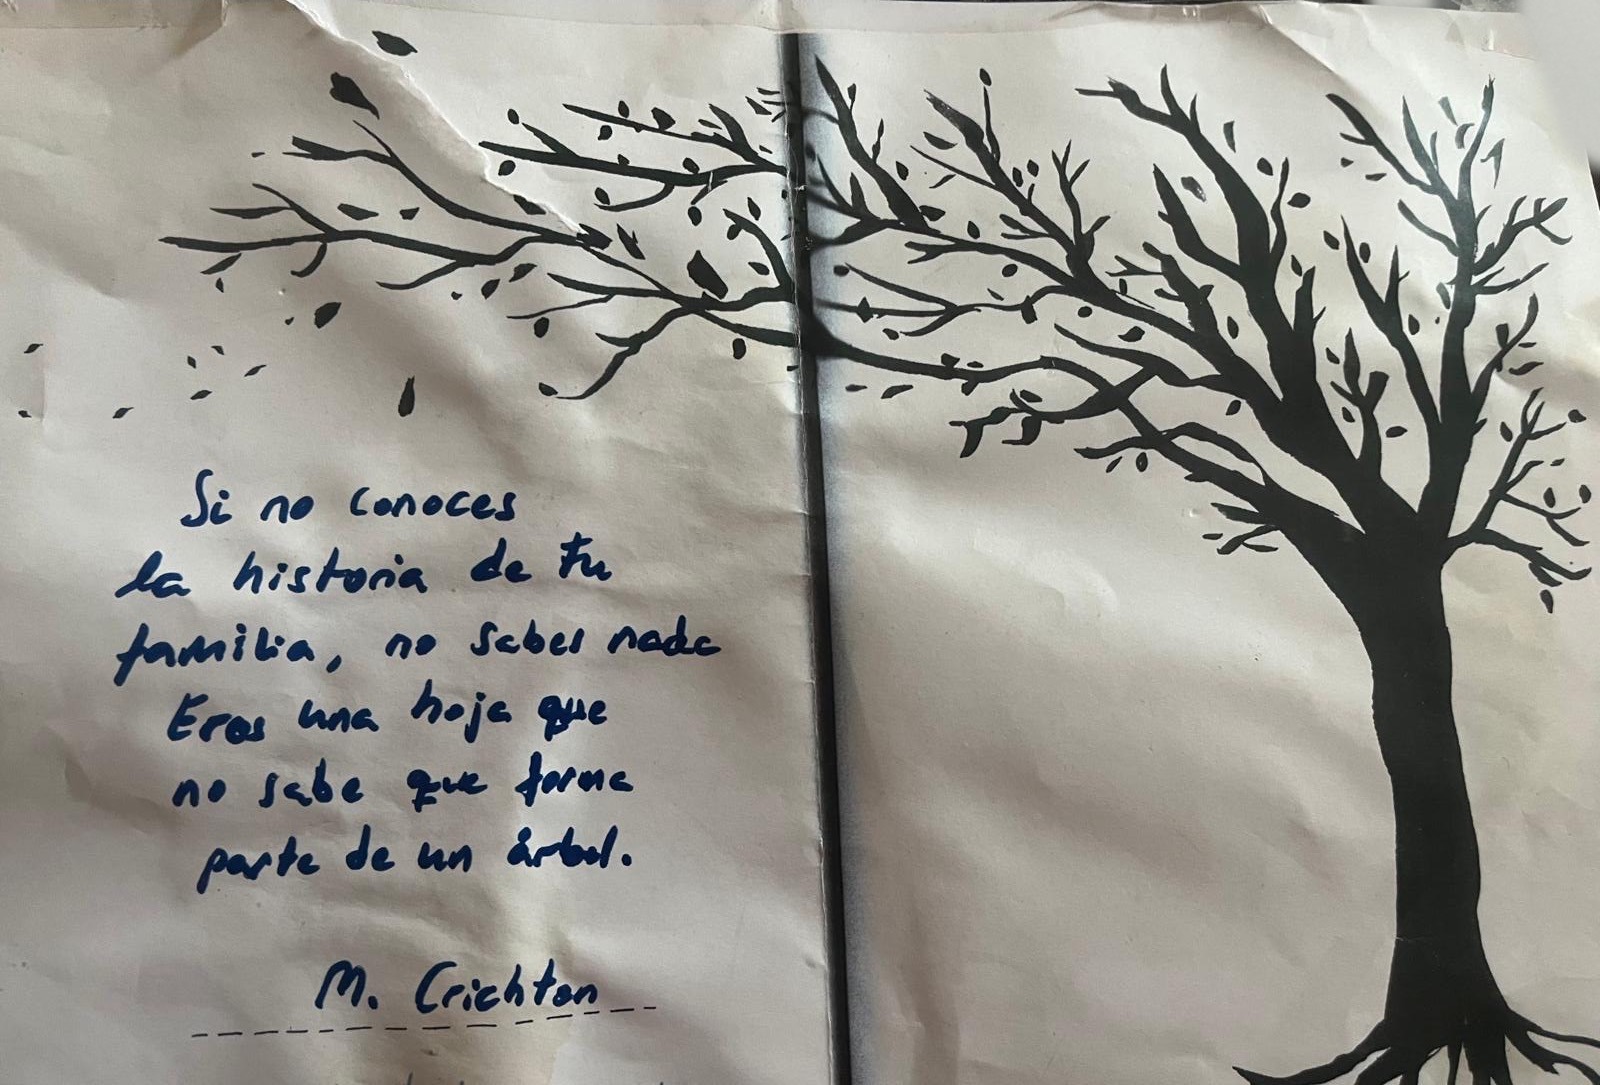 Si no conoces
la historia de tu
familia, no sabes nada
Eres una hoja que
no sabe que forma
parte de un árbol.
M. Crichton